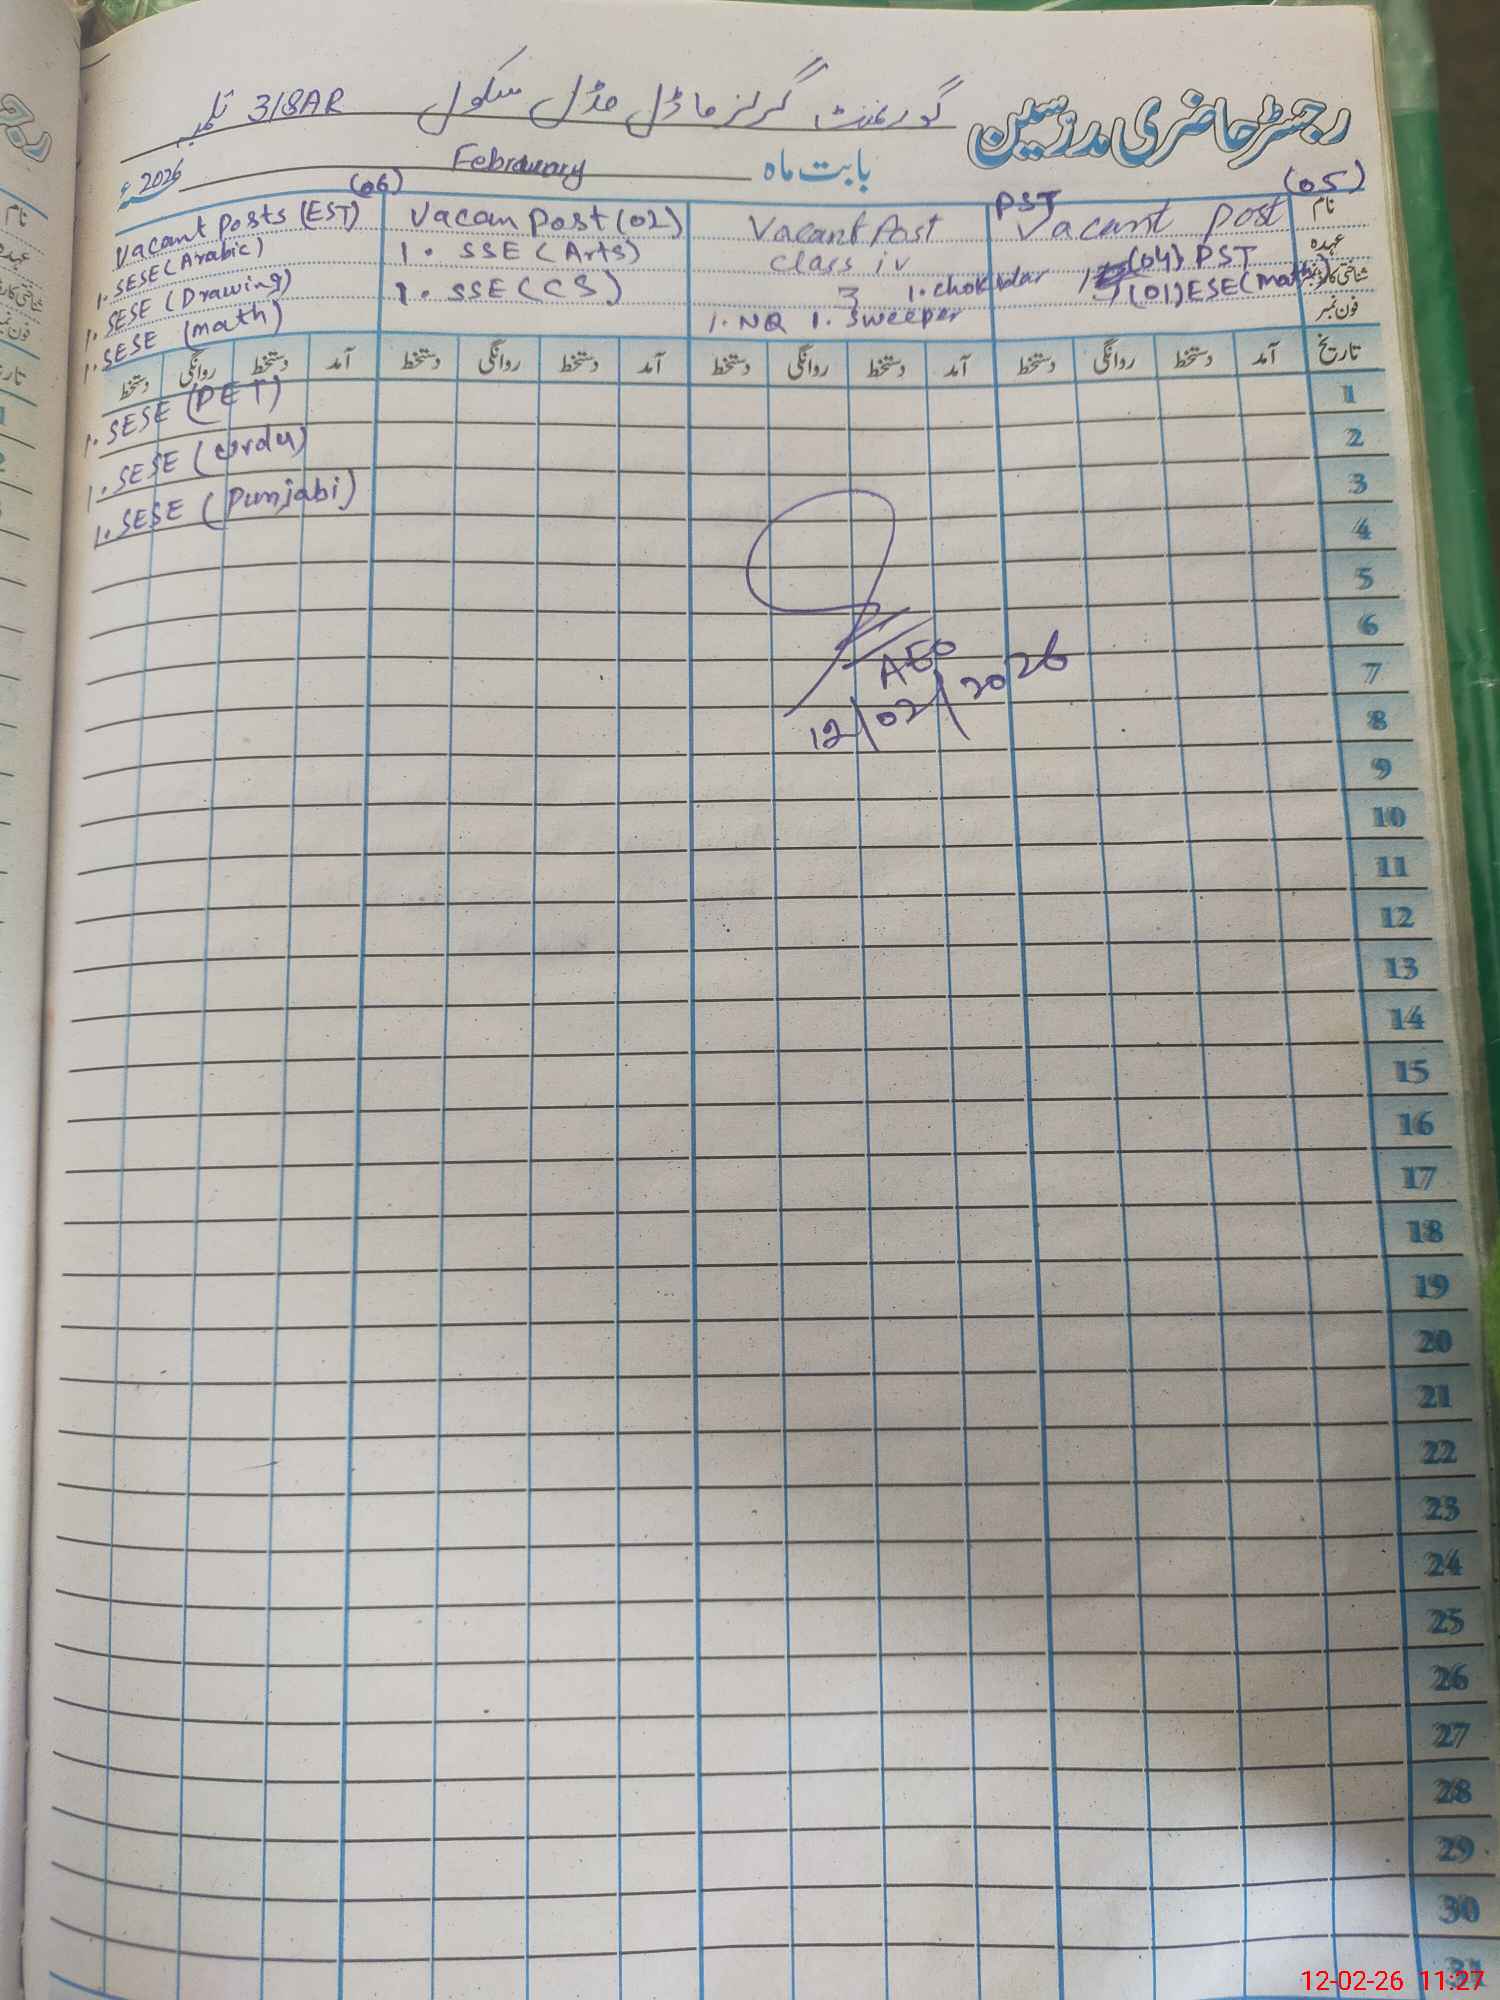 رجسٹر حاضری مدرسین گورنمنٹ گرلز ماڈل مڈل سکول 318AR تلمبہ
بابت ماہ February 2026ء
(05)
نام
عہدہ
شناختی کارڈ نمبر
فون نمبر
PST Vacant post
(04) PST
(01) ESE (math)
Vacant Post
Class iv
3 1. chokidar
1. NQ 1. Sweeper
Vacan post (02)
1. SSE (Arts)
1. SSE (CS)
(06)
Vacant Posts (EST)
1. SESE (Arabic)
1. SESE (Drawing)
1. SESE (math)
1. SESE (PET)
1. SESE (urdu)
1. SESE (Punjabi)
تاریخ آمد دستخط روانگی دستخط آمد دستخط روانگی دستخط آمد دستخط روانگی دستخط آمد دستخط روانگی دستخط
1
2
3
4
5
6
7
8
9
10
11
12
13
14
15
16
17
18
19
20
21
22
23
24
25
26
27
28
29
30
31
AEO
12/02/2026
12-02-26 11:27